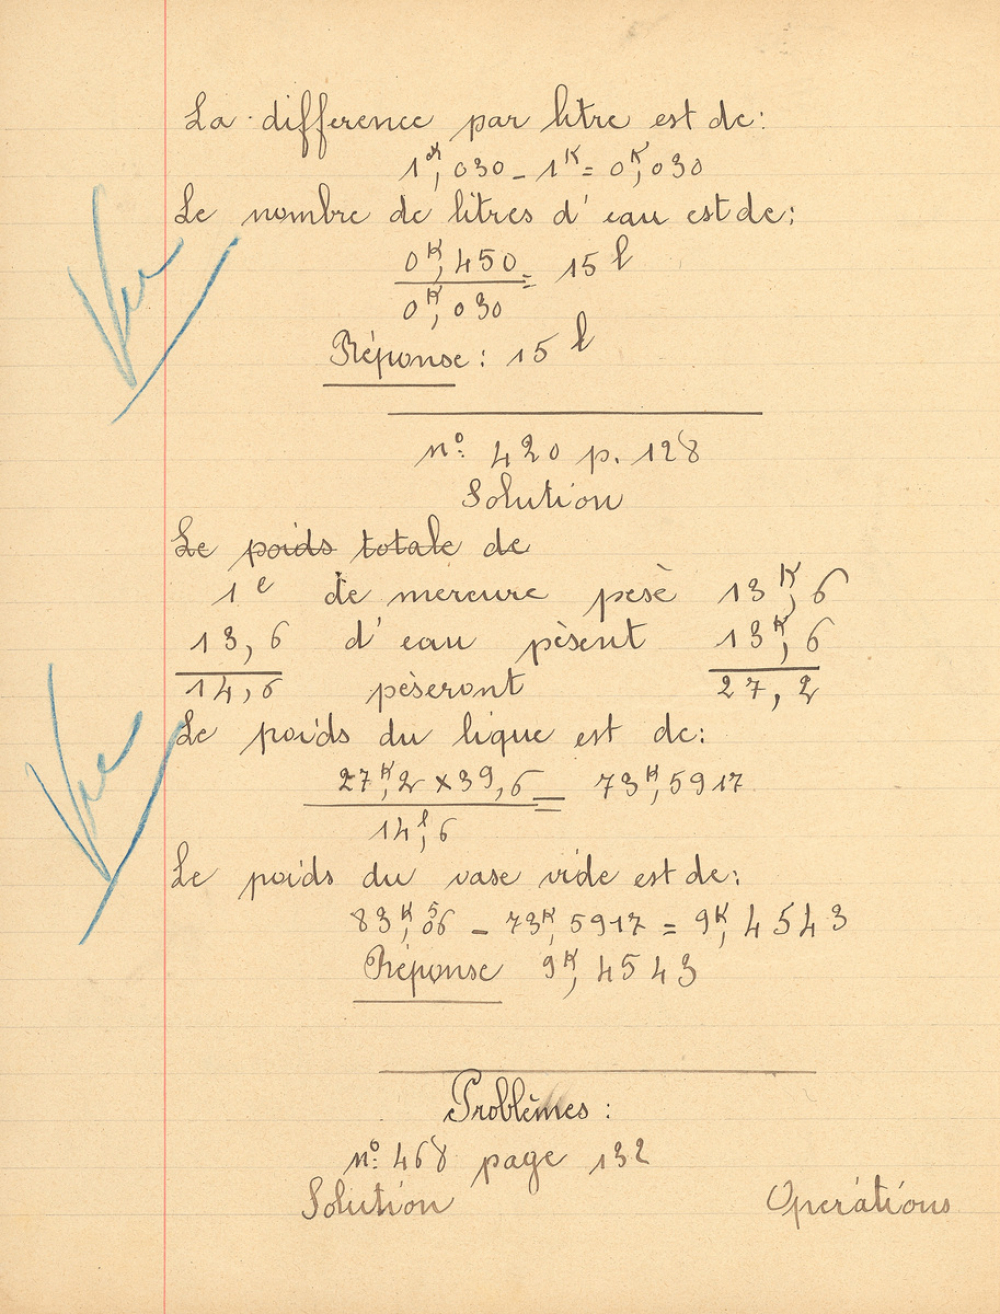 La difference par litre est de:
1K,030 - 1K = 0K,030
Le nombre de litres d'eau est de:
0K,450 = 15 l
0K,030
Vu
Réponse : 15 l
nº: 420 p. 128
Solution
Le poids totale de
1 l de mercure pèse 13K,6
13,6 d'eau pèsent 13K,6
14,6 pèseront 27,2
Le poids du lique est de:
27K,2 x 39,6 = 73K,5917
14l,6
Vu
Le poids du vase vide est de:
83K,056 - 73K,5917 = 9K,4543
Réponse 9K,4543
Problèmes :
nº: 468 page 132
Solution Opérations